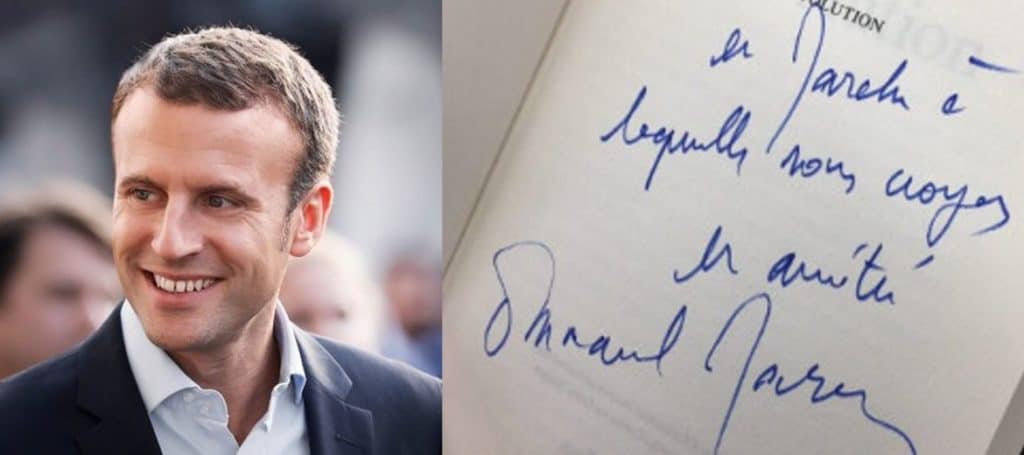 OLUTION
en Marche à
laquelle nous croyons
en amitié
Emmanuel Macron